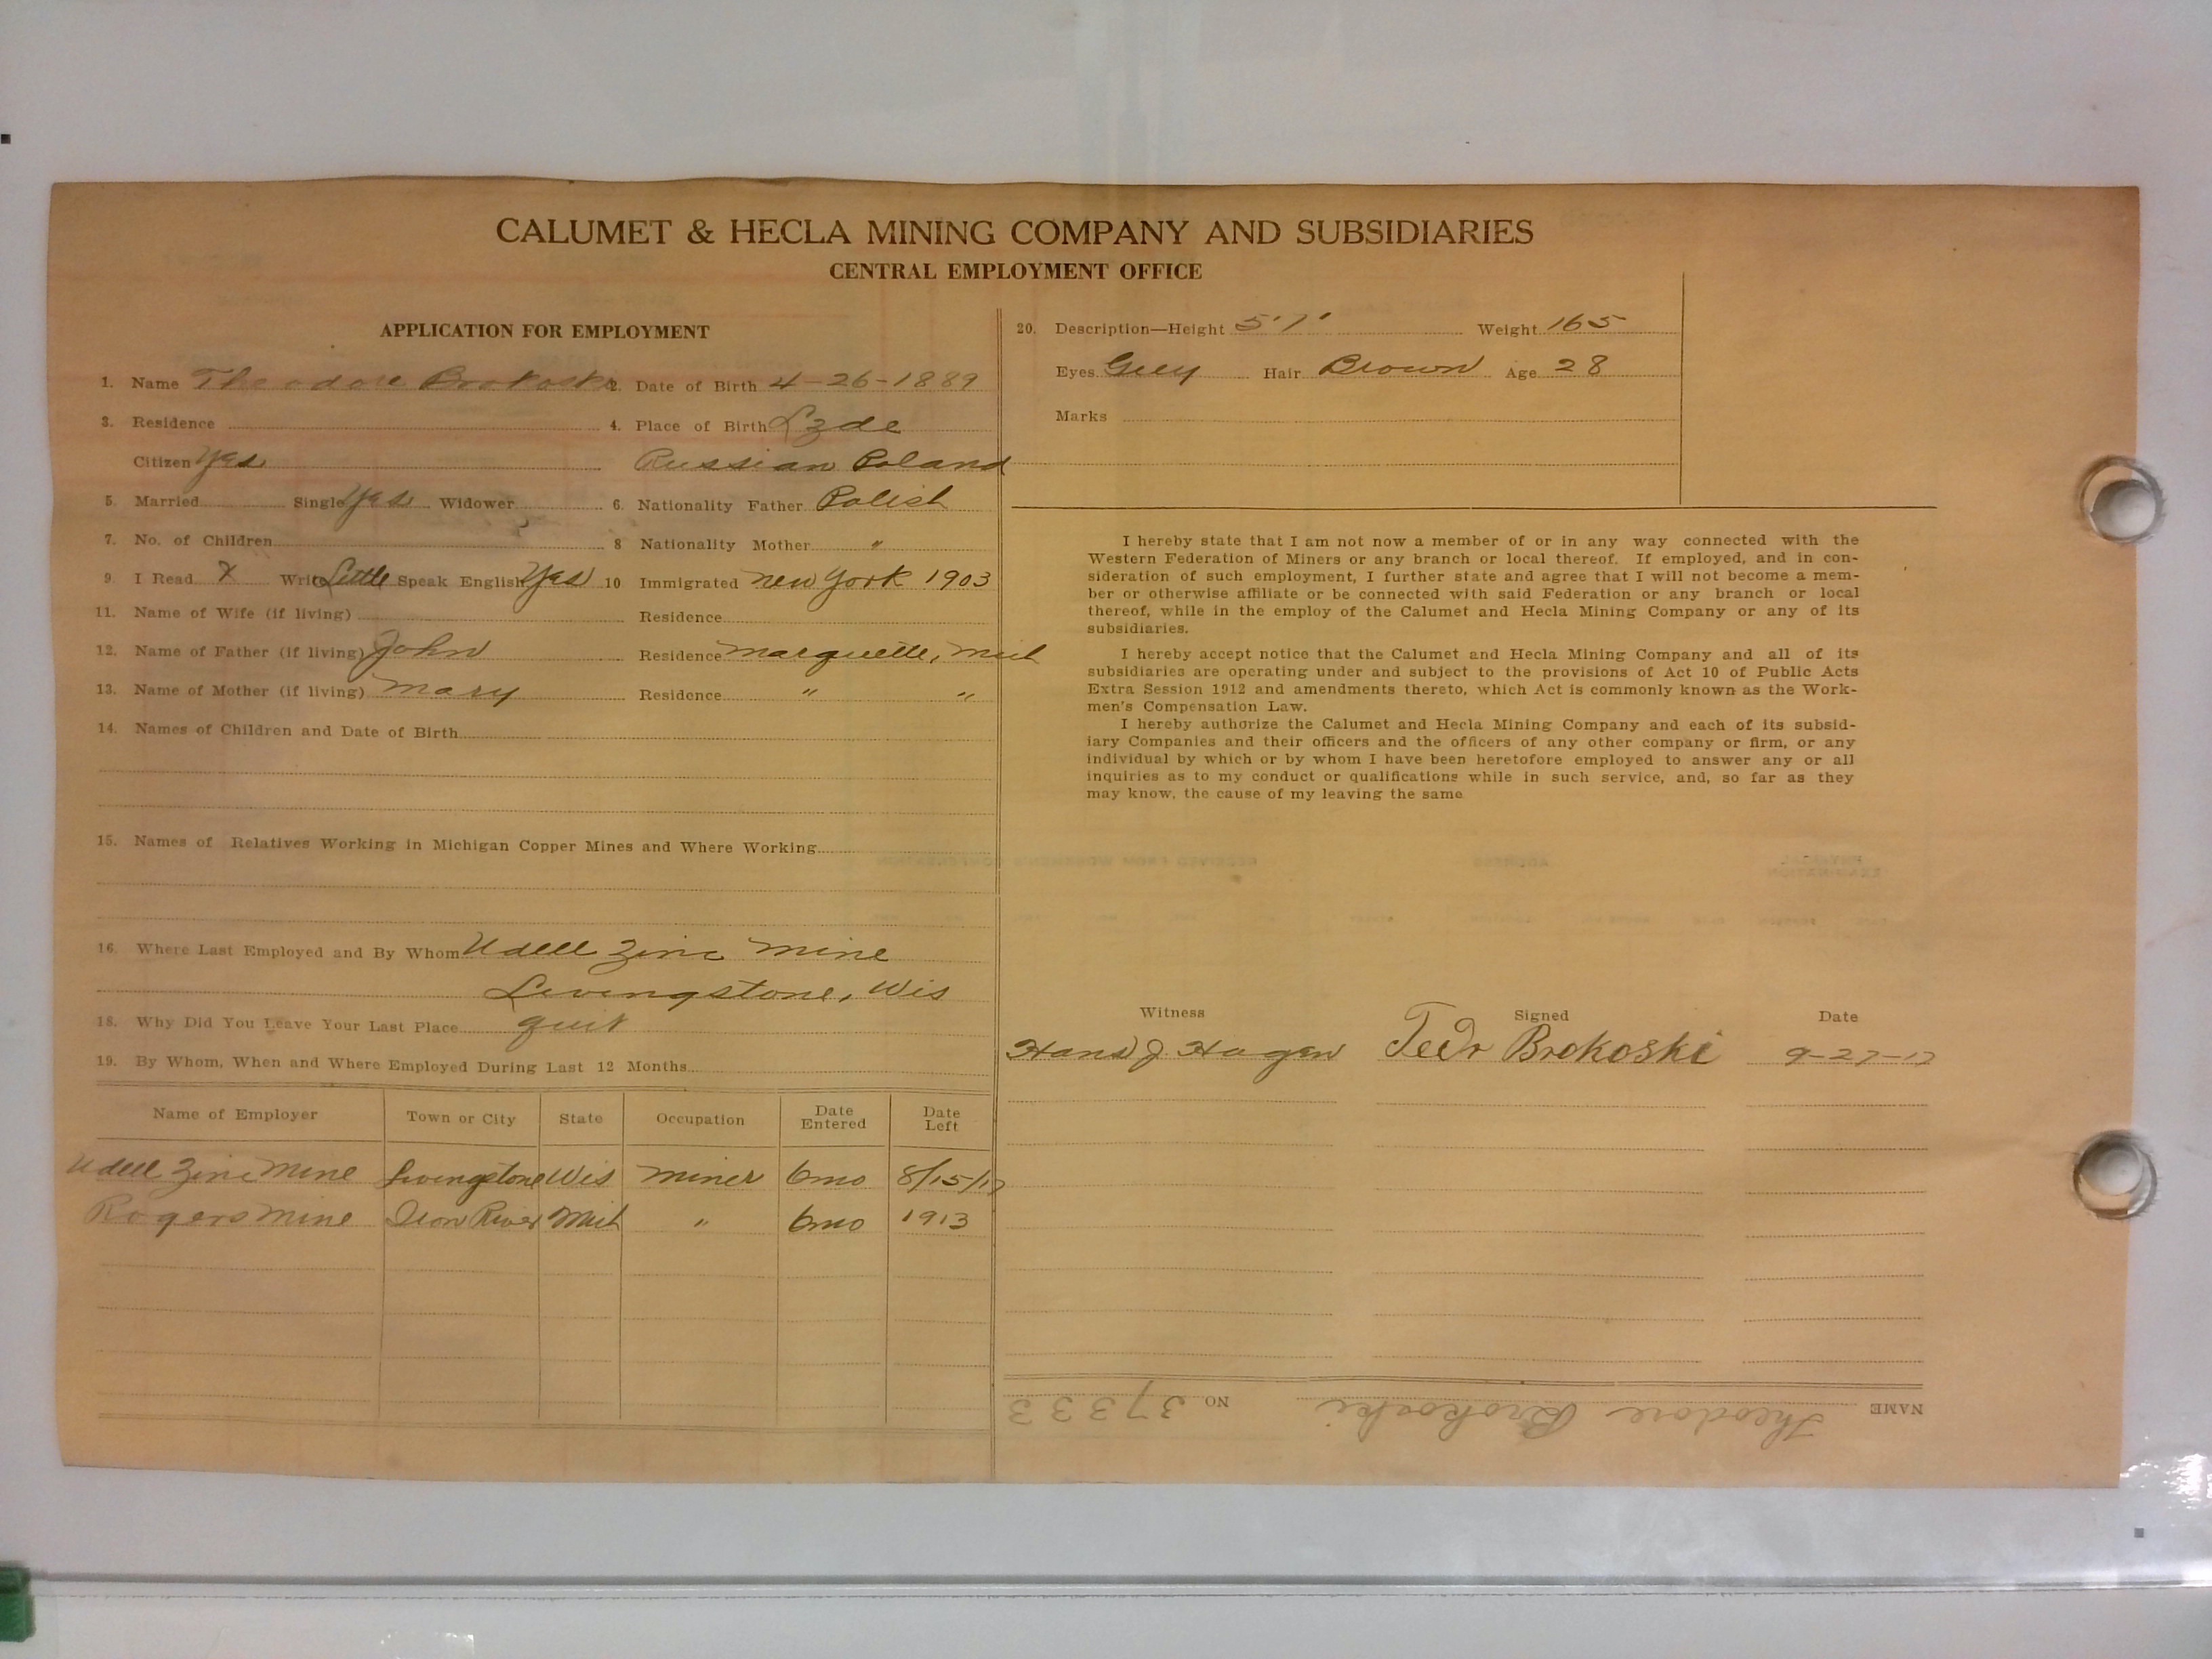 CALUMET & HECLA MINING COMPANY AND SUBSIDIARIES
CENTRAL EMPLOYMENT OFFICE
APPLICATION FOR EMPLOYMENT
1. Name Theodore Brokoski 2. Date of Birth 4-26-1889
3. Residence 4. Place of Birth Lzde
Citizen Yes Russian Poland
5. Married Single Yes Widower 6. Nationality Father Polish
7. No. of Children 8 Nationality Mother "
9. I Read X Write Little Speak English Yes 10 Immigrated New York 1903
11. Name of Wife (if living) Residence
12. Name of Father (if living) John Residence Marquette, Mich
13. Name of Mother (if living) Mary Residence " "
14. Names of Children and Date of Birth
15. Names of Relatives Working in Michigan Copper Mines and Where Working
16. Where Last Employed and By Whom Udell Zinc Mine
Livingstone, Wis
18. Why Did You Leave Your Last Place quit
19. By Whom, When and Where Employed During Last 12 Months
Name of Employer Town or City State Occupation Date Entered Date Left
Udell Zinc Mine Livingstone Wis Miner 6mo 8/15/17
Rogers Mine Iron River Mich " 6mo 1913
20. Description—Height 5'7" Weight 165
Eyes Grey Hair Brown Age 28
Marks
I hereby state that I am not now a member of or in any way connected with the
Western Federation of Miners or any branch or local thereof. If employed, and in con-
sideration of such employment, I further state and agree that I will not become a mem-
ber or otherwise affiliate or be connected with said Federation or any branch or local
thereof, while in the employ of the Calumet and Hecla Mining Company or any of its
subsidiaries.
I hereby accept notice that the Calumet and Hecla Mining Company and all of its
subsidiaries are operating under and subject to the provisions of Act 10 of Public Acts
Extra Session 1912 and amendments thereto, which Act is commonly known as the Work-
men's Compensation Law.
I hereby authorize the Calumet and Hecla Mining Company and each of its subsid-
iary Companies and their officers and the officers of any other company or firm, or any
individual by which or by whom I have been heretofore employed to answer any or all
inquiries as to my conduct or qualifications while in such service, and, so far as they
may know, the cause of my leaving the same
Witness Signed Date
Hans J. Hagen Tedr Brokoski 9-27-17
NAME Theodore Brokoski NO. 37333